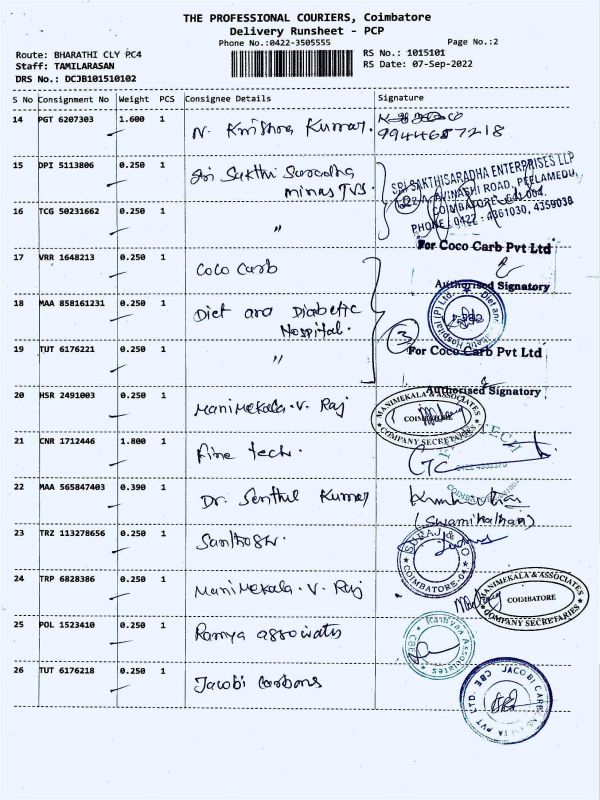 THE PROFESSIONAL COURIERS, Coimbatore
Delivery Runsheet - PCP
Phone No.:0422-3505555
Page No.:2
Route: BHARATHI CLY PC4
RS No.: 1015101
Staff: TAMILARASAN
RS Date: 07-Sep-2022
DRS No.: DCJB101510102
S No Consignment No Weight PCS Consignee Details Signature
14 PGT 6207303 1.600 1 N. Krishna Kumar.
9944687218
15 DPI 5113806 0.250 1 Sri Sakthi Saradha
minas TVS.
SRI SAKTHISARADHA ENTERPRISES LLP
AVINASHI ROAD, PEELAMEDU,
COIMBATORE - 641 004.
PHONE : 0422 - 4361030, 4359030
16 TCG 50231662 0.250 1 "
For Coco Carb Pvt Ltd
17 VRR 1648213 0.250 1 Coco Carb
Authorised Signatory
18 MAA 858161231 0.250 1 Diet and Diabetic
Hospital.
3
19 TUT 6176221 0.250 1 "
For Coco Carb Pvt Ltd
Authorised Signatory
20 HSR 2491003 0.250 1 Manimekala.V. Raj
MANIMEKALA & ASSOCIATES
COIMBATORE
COMPANY SECRETARIES
21 CNR 1712446 1.800 1 Fine tech.
22 MAA 565847403 0.390 1 Dr. Senthil Kumar
(Swaminathan)
23 TRZ 113278656 0.250 1 Santhosh.
SURAJ & CO
COIMBATORE-04
24 TRP 6828386 0.250 1 Manimekala. V. Raj
MANIMEKALA & ASSOCIATES
COIMBATORE
COMPANY SECRETARIES
25 POL 1523410 0.250 1 Ramya associates
Ramyaa Associates
CBE
26 TUT 6176218 0.250 1 Jacobi Carbons
JACOBI CARBONS INDIA PVT LTD. CBE